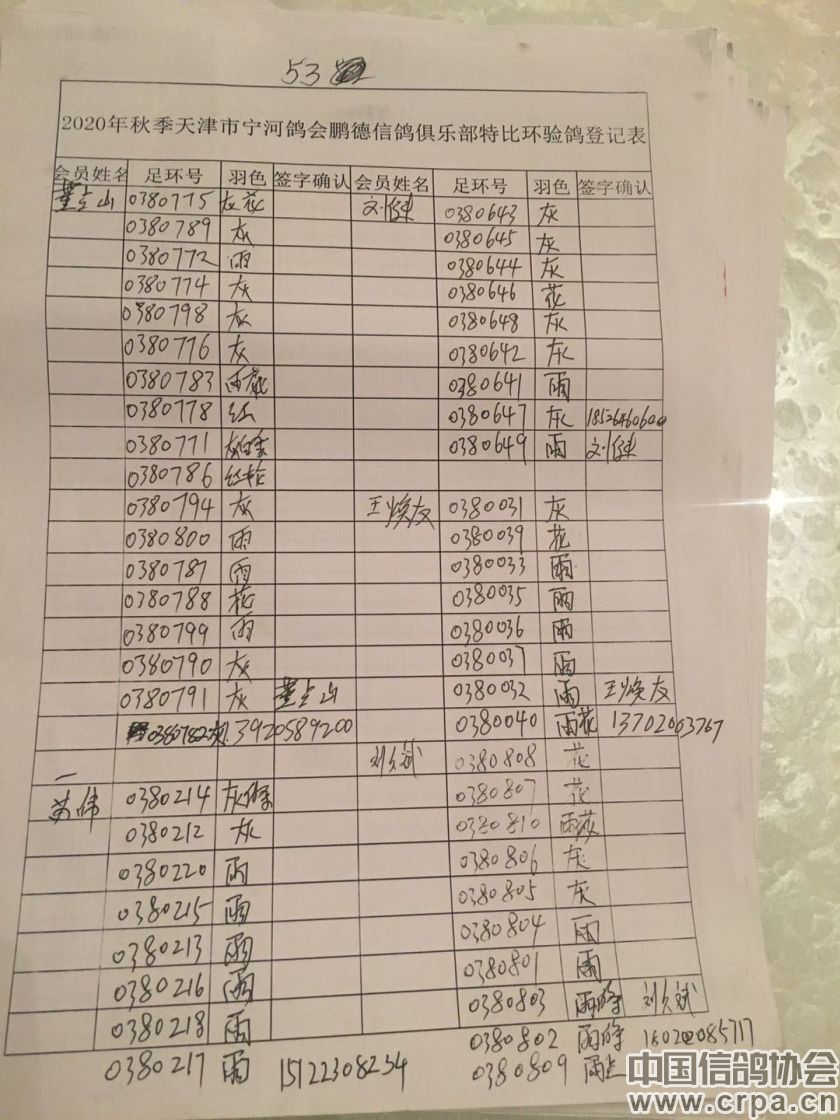 53
2020年秋季天津市宁河鸽会鹏德信鸽俱乐部特比环验鸽登记表
会员姓名 足环号 羽色 签字确认 会员姓名 足环号 羽色 签字确认
董立山 0380775 灰花 刘健 0380643 灰
0380789 灰 0380645 灰
0380772 雨 0380644 灰
0380774 灰 0380646 花
0380798 灰 0380648 灰
0380776 灰 0380642 灰
0380783 雨花 0380641 雨
0380778 红 0380647 灰 18526460600
0380771 0380649 雨 刘健
0380786 红轮
0380794 灰 王焕友 0380031 灰
0380800 雨 0380039 花
0380787 雨 0380033 雨
0380788 花 0380035 雨
0380799 雨 0380036 雨
0380790 灰 0380037 雨
0380791 灰 董立山 0380032 雨 王焕友
0380782 13920589200 0380040 雨花 13702003767
刘久斌 0380808 花
苏伟 0380214 灰条 0380807 花
0380212 灰 0380810 雨花
0380220 雨 0380806 灰
0380215 雨 0380805 灰
0380213 雨 0380804 雨
0380216 雨 0380801 雨
0380218 雨 0380803 雨条 刘久斌
0380217 雨 15122308234 0380802 雨条
0380809 雨
中国信鸽协会
www.crpa.cn